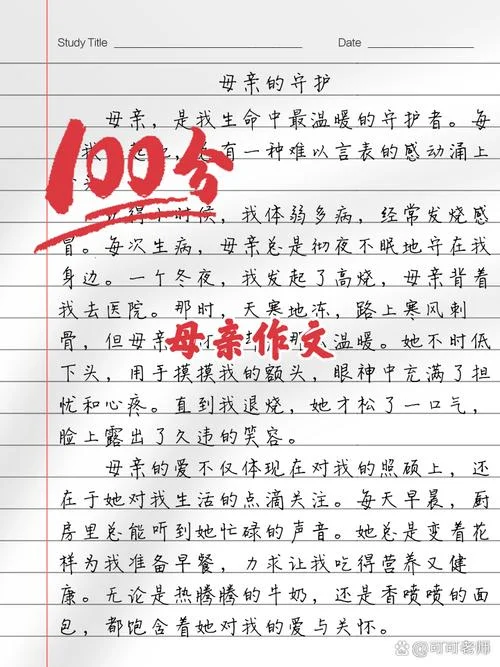 Study Title
Date
母亲的守护
母亲，是我生命中最温暖的守护者。每
我 起 ，总有一种难以言表的感动涌上
头
100分
记得小时候，我体弱多病，经常发烧感
冒。每次生病，母亲总是彻夜不眠地守在我
身边。一个冬夜，我发起了高烧，母亲背着
我去医院。那时，天寒地冻，路上寒风刺
骨，但母亲 那 温暖。她不时低
母亲作文
下头，用手摸摸我的额头，眼神中充满了担
忧和心疼。直到我退烧，她才松了一口气，
脸上露出了久违的笑容。
母亲的爱不仅体现在对我的照顾上，还
在于她对我生活的点滴关注。每天早晨，厨
房里总能听到她忙碌的声音。她总是变着花
样为我准备早餐，力求让我吃得营养又健
康。无论是热腾腾的牛奶，还是香喷喷的面
包，都饱含着她对我的爱与关怀。
可可老师